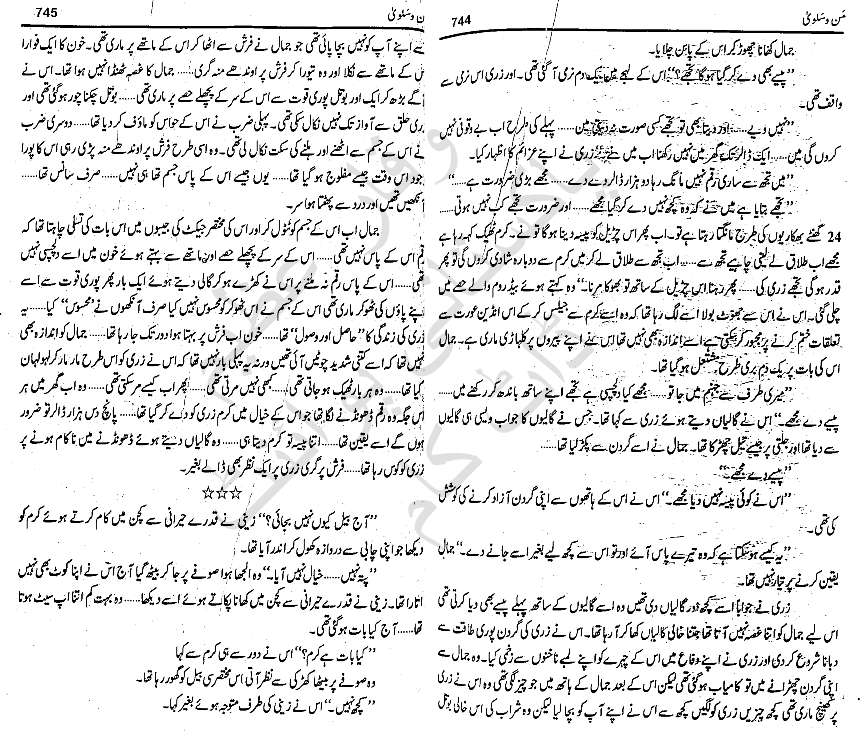 من وسلویٰ
744
جمال کھانا چھوڑ کر اس کے پاس چلا آیا۔
”پیسے بھی دے کر گیا ہو گا تجھے؟“ اس کے لہجے میں یک دم نرمی آ گئی تھی۔ اور زری اس نرمی سے
واقف تھی۔
”نہیں دیے...... اور دیتا بھی تو تجھے کسی صورت نہ دیتی میں...... پہلے کی طرح اب بے وقوفی نہیں
کروں گی میں...... ایک ڈالر تک گھر میں نہیں رکھنا اب میں نے“ زری نے اپنے عزائم کا اظہار کیا۔
”میں تجھ سے ساری رقم نہیں مانگ رہا دو ہزار ڈالر دے دے...... مجھے بڑی ضرورت ہے......“
”تجھے بتایا ہے میں نے کہ وہ کچھ نہیں دے کر گیا مجھے...... اور ضرورت تجھے کب نہیں ہوتی......
24 گھنٹے بھکاریوں کی طرح مانگتا رہتا ہے تو۔ اب پھر اس چڑیل کو پیسہ دینا ہو گا تو نے۔ کرم ٹھیک کہہ رہا ہے
مجھے اب طلاق لے لینی چاہیے تجھ سے...... اب تجھ سے طلاق لے کر میں کرم سے دوبارہ شادی کروں گی تو پھر
قدر ہو گی تجھے زری کی...... پھر رہنا اس چڑیل کے ساتھ تو بھوکا مرنا۔“ وہ کہتے ہوئے بیڈ روم والے حصے میں
چلی گئی۔ اس نے اس سے جھوٹ بولا اسے لگ رہا تھا کہ وہ اسے کرم سے جیلس کر کے اس انڈین عورت سے
تعلقات ختم کرنے پر مجبور کر سکتی ہے اسے اندازہ بھی نہیں تھا اس نے اپنے پیروں پر کلہاڑی ماری ہے۔ جمال
اس کی بات پر یک دم بری طرح مشتعل ہو گیا تھا۔
”میری طرف سے جہنم میں جا تو...... مجھے کیا دلچسپی ہے تجھے اپنے ساتھ باندھ کر رکھنے میں......
پیسے دے مجھے۔“ اس نے گالیاں دیتے ہوئے زری سے کہا تھا۔ جس نے گالیوں کا جواب ویسی ہی گالیوں
سے دیا تھا اور جلتی پر جیسے تیل چھڑکا تھا۔ جمال نے اسے گردن سے پکڑ لیا تھا......
”پیسے دے مجھے......“
”اس نے کوئی پیسہ نہیں دیا مجھے۔“ اس نے اس کے ہاتھوں سے اپنی گردن آزاد کرنے کی کوشش
کی تھی۔
”یہ کیسے ہو سکتا ہے کہ وہ تیرے پاس آئے اور تو اس سے کچھ لیے بغیر اسے جانے دے۔“ جمال
یقین کرنے پر تیار نہیں تھا۔
زری نے جواباً اسے کچھ اور گالیاں دی تھیں وہ اسے گالیوں کے ساتھ پہلے پیسے بھی دیا کرتی تھی
اس لیے جمال کو اتنا غصہ نہیں آتا تھا جتنا خالی گالیاں کھا کر آ رہا تھا۔ اس نے زری کی گردن پوری طاقت سے
دبانا شروع کر دی اور زری نے اپنے دفاع میں اس کے چہرے کو اپنے لمبے ناخنوں سے زخمی کیا۔ وہ جمال سے
اپنی گردن چھڑانے میں تو کامیاب ہو گئی تھی لیکن اس کے بعد جمال کے ہاتھ میں جو چیز لگی تھی وہ اس نے زری
پر کھینچ ماری تھی کچھ چیزیں زری کو لگیں کچھ سے اس نے اپنے آپ کو بچا لیا لیکن وہ شراب کی اس خالی بوتل
ن وسلویٰ
745
سے اپنے آپ کو نہیں بچا پائی تھی جو جمال نے فرش سے اٹھا کر اس کے ماتھے پر ماری تھی۔ خون کا ایک فوارا
س کے ماتھے سے نکلا اور وہ تیورا کر فرش پر اوندھے منہ گری...... جمال کا غصہ ٹھنڈا نہیں ہوا تھا۔ اس نے
گے بڑھ کر ایک اور بوتل پوری قوت سے اس کے سر کے پچھلے حصے پر ماری تھی...... بوتل چکنا چور ہو گئی تھی اور
ری حلق سے آواز تک نہیں نکال سکی تھی۔ پہلی ضرب نے اس کے حواس کو ماؤف کر دیا تھا...... دوسری ضرب
نے اس کے جسم سے اٹھنے اور ہلنے کی سکت نکال لی تھی۔ وہ اسی طرح فرش پر اوندھے منہ پڑی رہی اس کا پورا
جود اس وقت جیسے مفلوج ہو گیا تھا...... یوں جیسے اس کے پاس جسم تھا ہی نہیں...... صرف سانس تھا......
آنکھیں تھیں اور درد سے پھٹتا ہوا سر۔
جمال اب اس کے جسم کو ٹٹول کر اور اس کی مختصر جیکٹ کی جیبوں میں اس بات کی تسلی چاہتا تھا کہ
قم اس کے پاس نہیں تھی...... اس کے سر کے پچھلے حصے اور ماتھے سے بہتے ہوئے خون میں اسے دلچسپی نہیں
تھی...... اس کے پاس رقم نہ ملنے پر اس نے کھڑے ہو کر گالی دیتے ہوئے ایک بار پھر پوری قوت سے اسے
اپنے پاؤں کی ٹھوکر ماری تھی اس کے جسم نے اس ٹھوکر کو محسوس نہیں کیا صرف آنکھوں نے ”محسوس“ کیا...... یہ
زری کی زندگی کا ”حاصل اور وصول“ تھا...... خون اب فرش پر بہتا ہوا دور تک جا رہا تھا...... جمال کو اندازہ بھی
نہیں تھا کہ اسے کتنی شدید چوٹیں آئی تھیں ورنہ یہ پہلی بار نہیں تھا کہ اس نے زری کو اس طرح مار مار کر لہولہان
کیا تھا...... وہ ہر بار ٹھیک ہو جاتی تھی...... کبھی نہیں مرتی تھی...... پھر اب کیسے مر سکتی تھی...... وہ اب گھر میں ہر
اس جگہ وہ رقم ڈھونڈنے لگا تھا جو اس کے خیال میں کرم زری کو دے کر گیا تھا...... پانچ دس ہزار ڈالر تو ضرور
ہوں گے اسے یقین تھا...... اتنا پیسہ تو کرم دیتا ہی...... وہ گالیاں دیتے ہوئے ڈھونڈنے میں ناکام ہونے پر
زری کو کوس رہا تھا...... فرش پر گری زری پر ایک نظر بھی ڈالے بغیر۔
☆☆☆
”آج بیل کیوں نہیں بجائی؟“ زینی نے قدرے حیرانی سے کچن میں کام کرتے ہوئے کرم کو
دیکھا جو اپنی چابی سے دروازہ کھول کر اندر آیا تھا۔
”پتہ نہیں...... خیال نہیں آیا۔“ وہ الجھا ہوا صوفے پر جا کر بیٹھ گیا آج اس نے اپنا کوٹ بھی نہیں
اتارا تھا۔ زینی نے قدرے حیرانی سے کچن میں کھانا پکاتے ہوئے اسے دیکھا...... وہ بہت کم اتنا اپ سیٹ ہوتا
تھا...... آج کیا بات ہو گئی تھی۔
”کیا بات ہے کرم؟“ اس نے دور سے ہی کرم سے کہا
وہ صوفے پر بیٹھا کھڑکی سے نظر آتی اس مختصر سی بیل کو گھور رہا تھا۔
”کچھ نہیں۔“ اس نے زینی کی طرف متوجہ ہوئے بغیر کہا۔